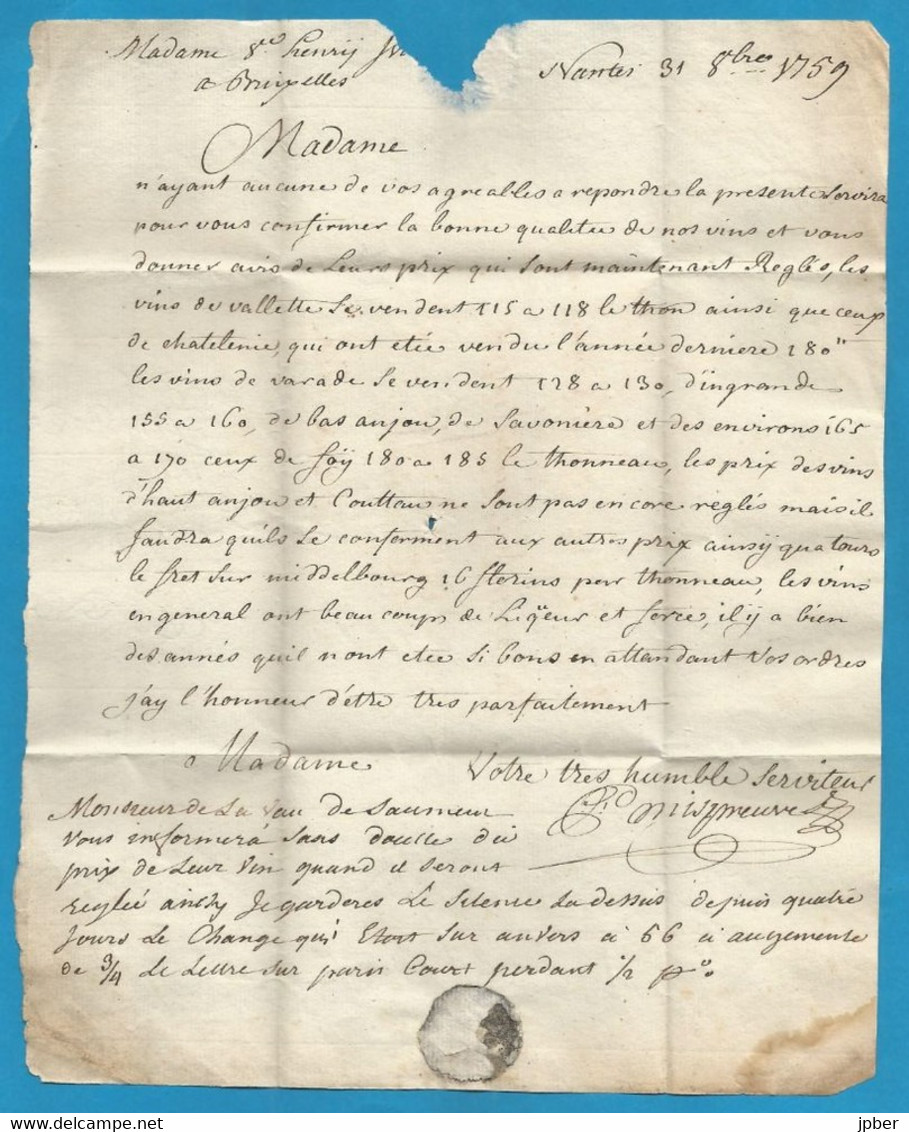 Madame Ve henrij
a Bruxelles
Nantes 31 8bres 1759
Madame
n'ayant aucune de vos agreables a repondre la presente Servira
pour vous confirmer la bonne qualitee de nos vins et vous
donner avis de Leurs prix qui sont maintenant Reglés, les
vins de vallette Se vendent 115 a 118 le thon ainsi que ceux
de chatelenie, qui ont etée vendu l'année derniere 180"
les vins de varade Se vendent 128 a 130, d'ingrande
155 a 160, de bas anjou, de Savoniere et des environs 165
a 170 ceux de foÿ 180 a 185 le thonneau, les prix des vins
d'haut anjou et Couttau ne Sont pas encore reglés mais il
faudra quils Se conferment aux autres prix ainsÿ qua tours
le fret sur middelbourg 16 florins pour thonneau, les vins
en general ont beaucoup de Liqeur et force, il ÿ a bien
des annés quil n'ont etée Si bons en attendant Vos ordres
j'ay l'honneur d'être tres parfaitement
Madame
Votre tres humble Serviteur
Monsieur de La Vau de Saumeur
vous informerá Sans doutte du
prix de Leur Vin quand il Seront
regleé ainsy Je garderes Le Silence La dessus depuis quatre
Jours Le Change qui Etoit Sur anvers á 56 á augemente
de 3/4 Le Lettre sur paris Court perdant 1/2 po
jpber